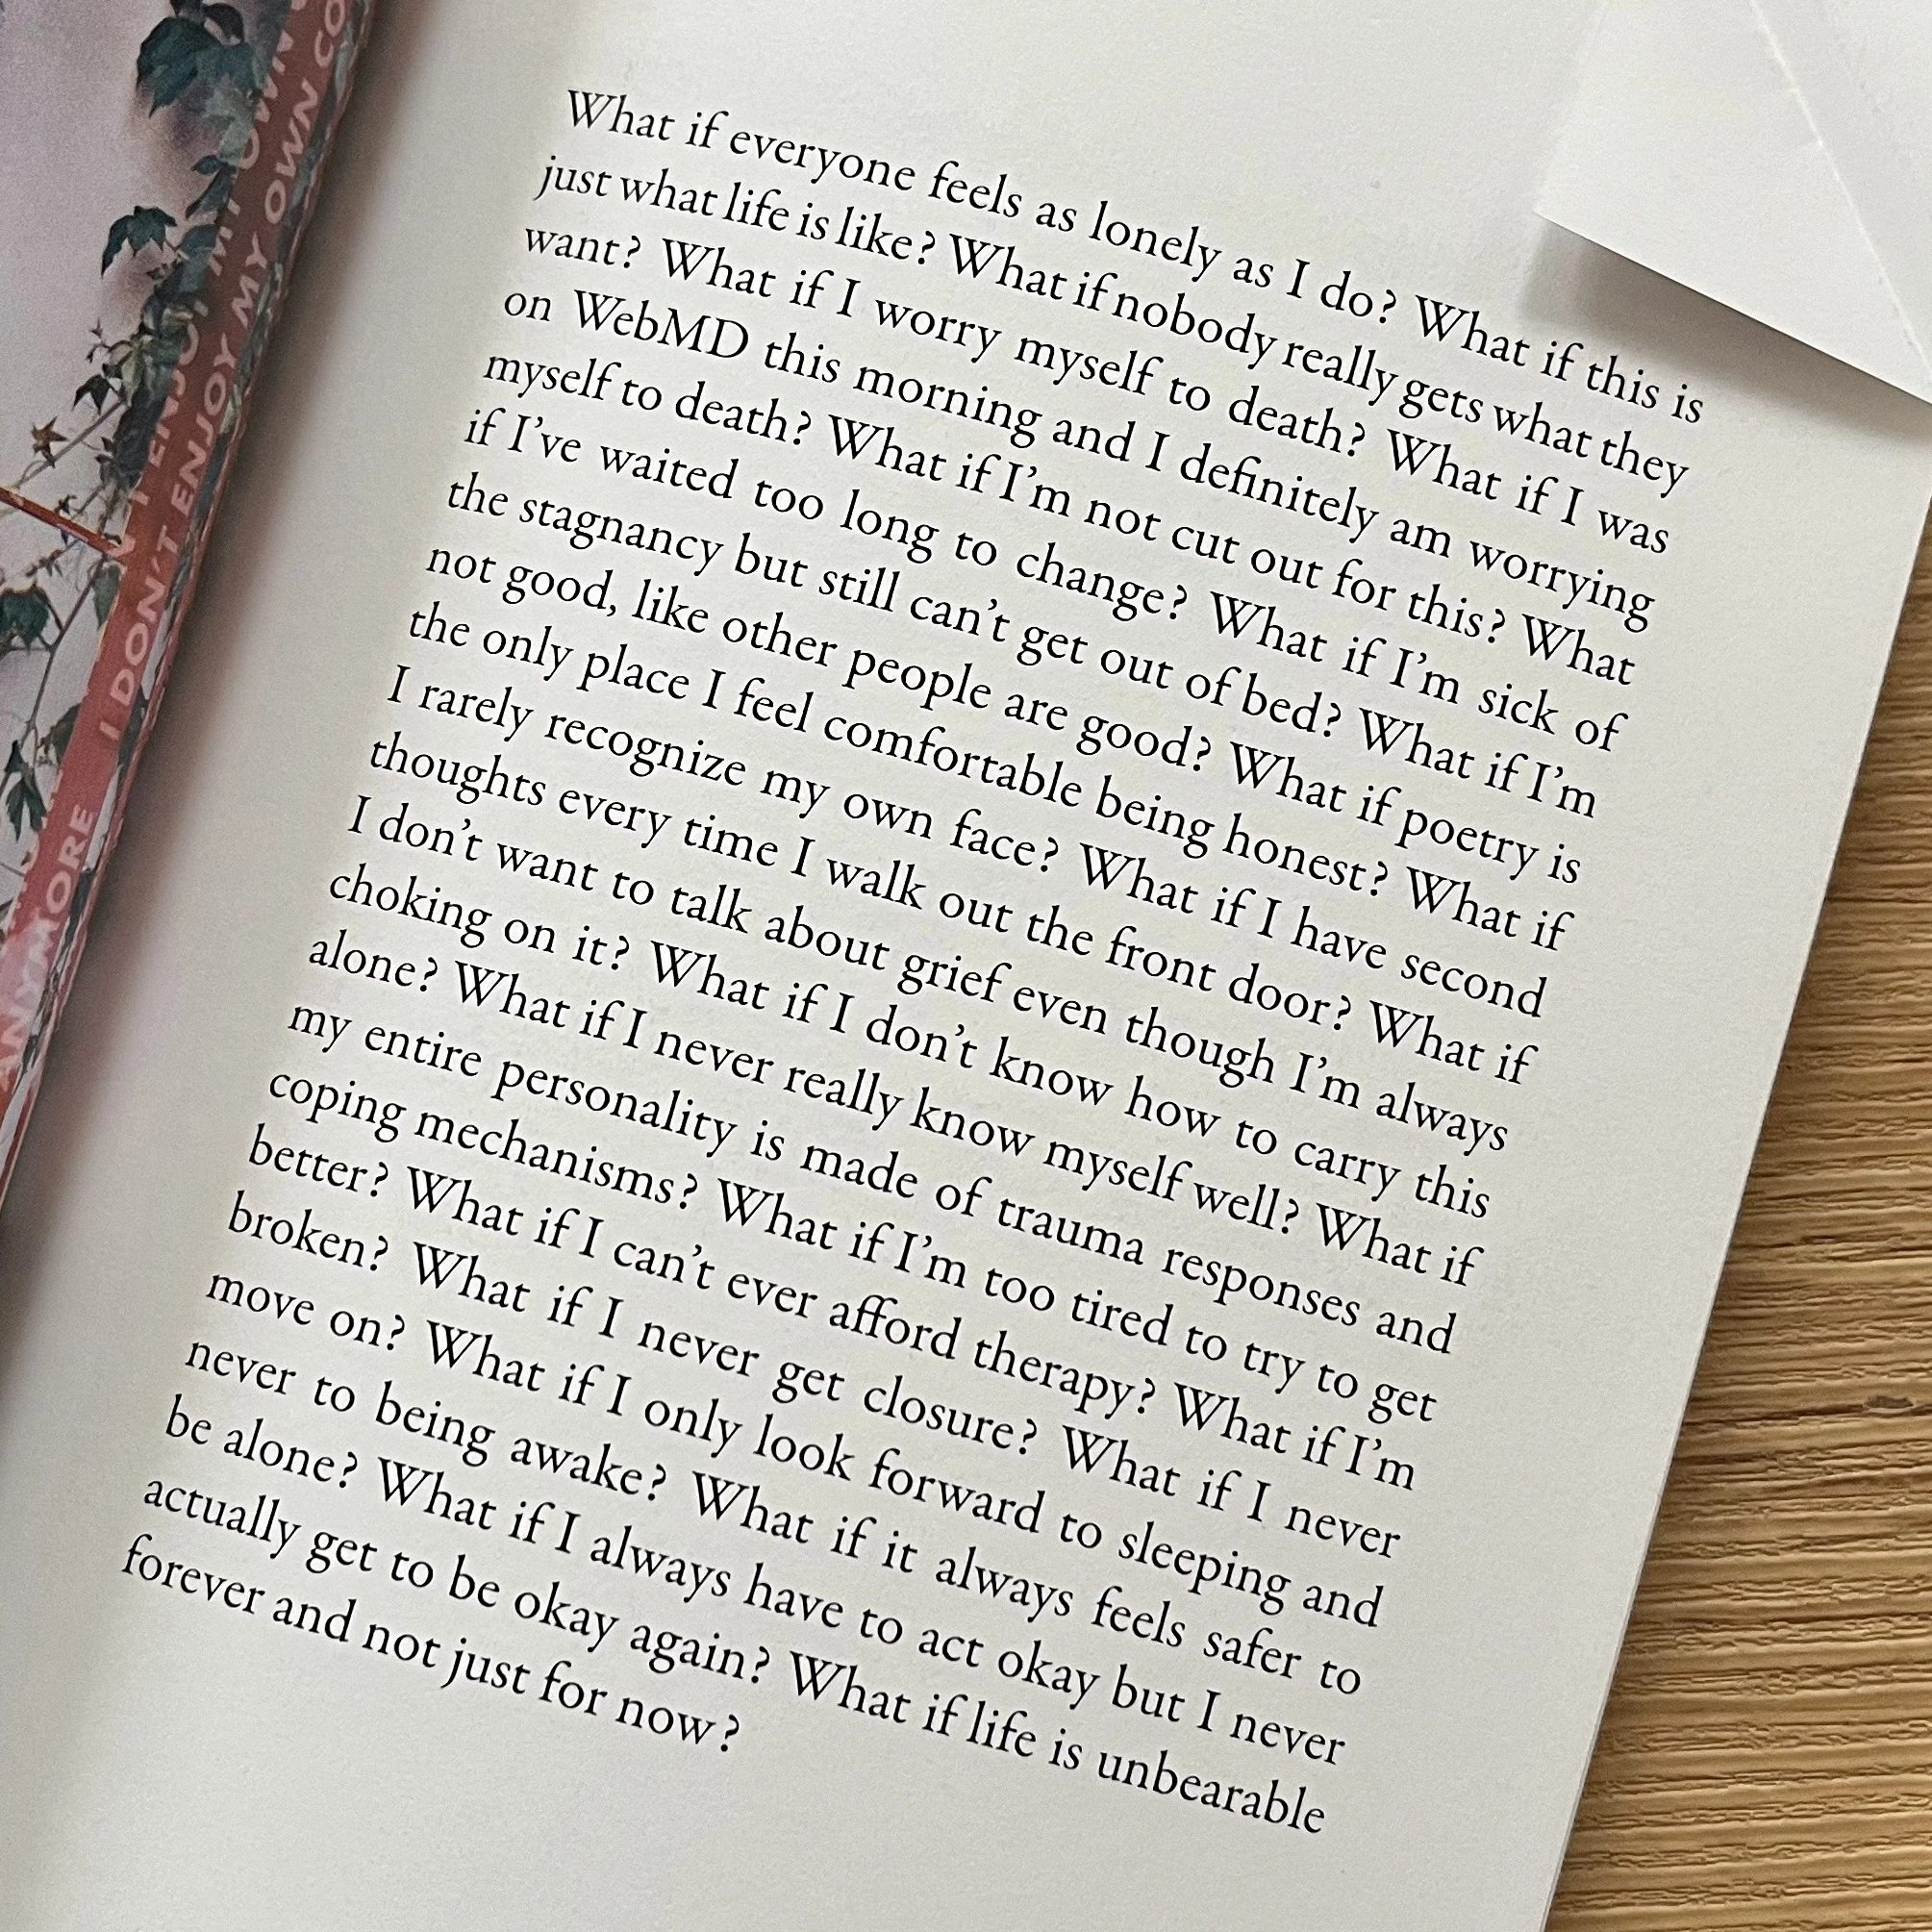 What if everyone feels as lonely as I do? What if this is
just what life is like? What if nobody really gets what they
want? What if I worry myself to death? What if I was
on WebMD this morning and I definitely am worrying
myself to death? What if I'm not cut out for this? What
if I've waited too long to change? What if I'm sick of
the stagnancy but still can't get out of bed? What if I'm
not good, like other people are good? What if poetry is
the only place I feel comfortable being honest? What if
I rarely recognize my own face? What if I have second
thoughts every time I walk out the front door? What if
I don't want to talk about grief even though I'm always
choking on it? What if I don't know how to carry this
alone? What if I never really know myself well? What if
my entire personality is made of trauma responses and
coping mechanisms? What if I'm too tired to try to get
better? What if I can't ever afford therapy? What if I'm
broken? What if I never get closure? What if I never
move on? What if I only look forward to sleeping and
never to being awake? What if it always feels safer to
be alone? What if I always have to act okay but I never
actually get to be okay again? What if life is unbearable
forever and not just for now?
I DON'T ENJOY MY OWN
ANYMORE